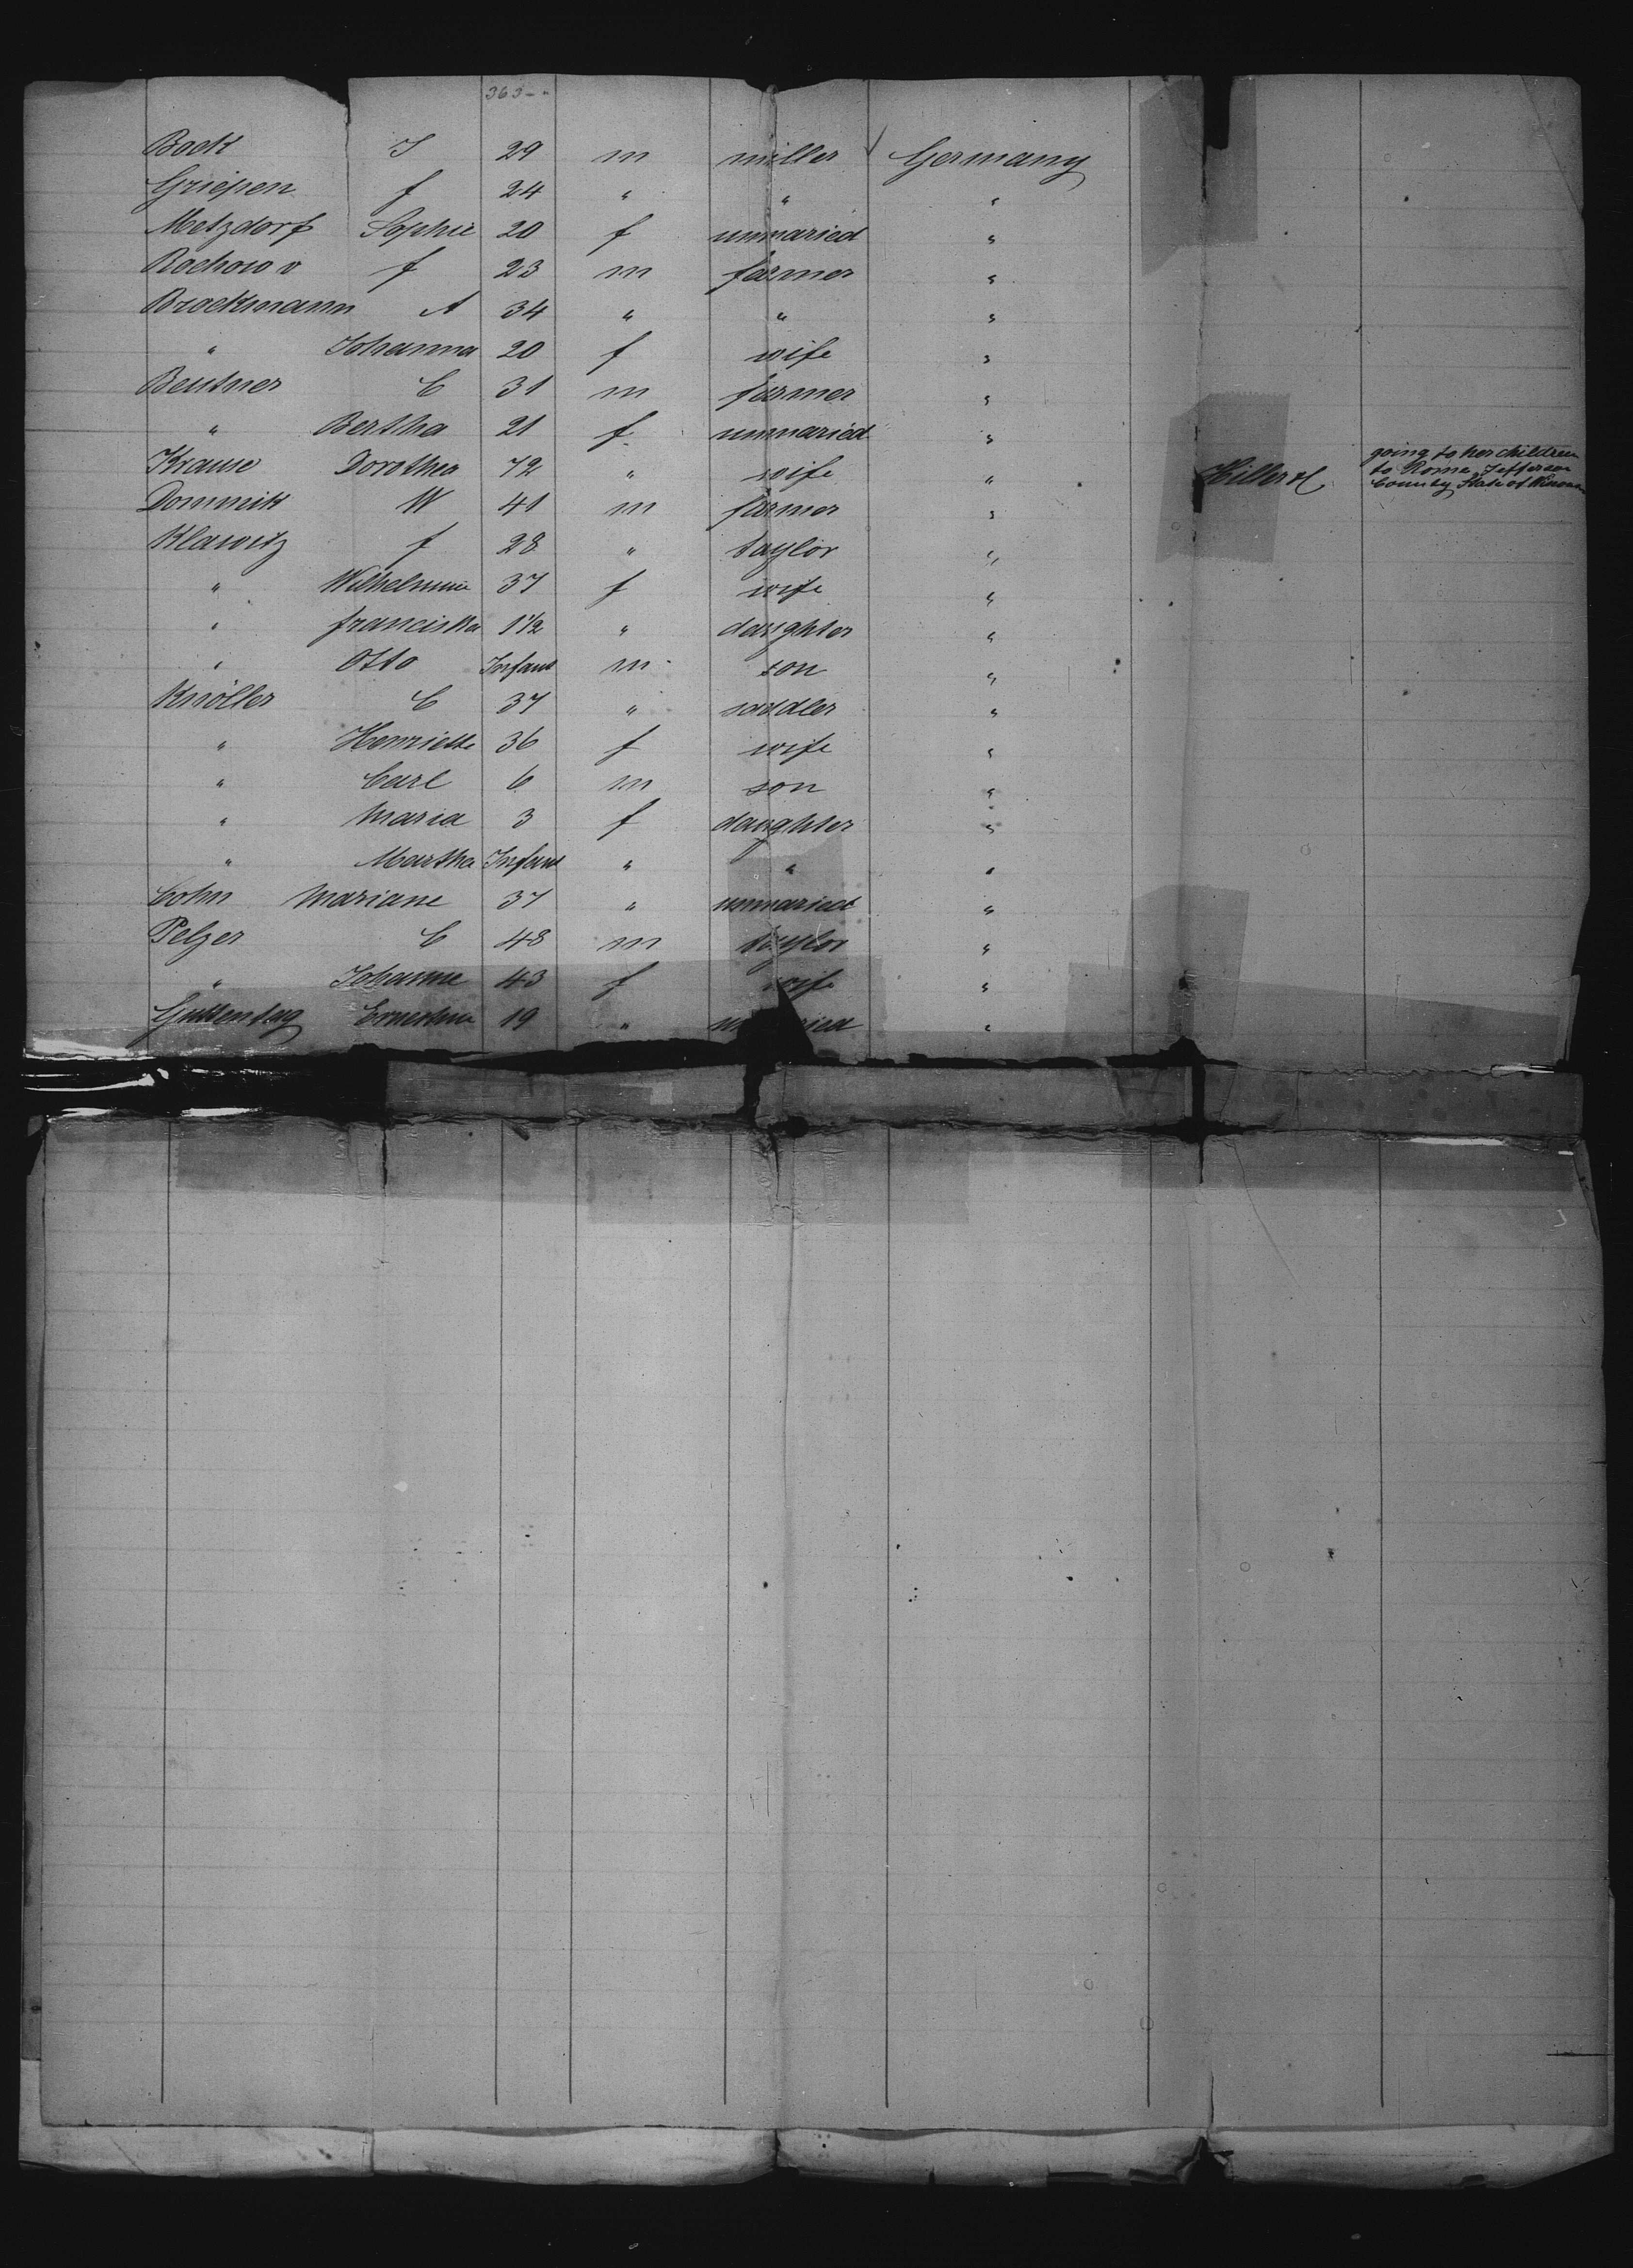 363 - "
Bock J 29 m miller Germany
Griepen f 24 " " "
Metzdorf Sophie 20 f unmaried "
Rochow v f 23 m farmer "
Brockmann A 34 " " "
" Johanna 20 f wife "
Beutner C 31 m farmer "
" Bertha 21 f unmaried "
Krause Dorothea 72 " wife " going to her children
to Rome, Jefferson
County State of
Dommik W 41 m farmer "
Klawitz f 28 " taylor "
" Wilhelmine 37 f wife "
" franciska 1 1/2 " daughter "
" Otto Infant m son "
Knöller C 37 " saddler "
" Henriette 36 f wife "
" Carl 6 m son "
" Maria 3 f daughter "
" Martha Infant " " "
Cohn Mariane 37 " unmaried "
Pelzer C 48 m taylor "
" Johanne 43 f wife "
Guttentag Ernestine 19 " "